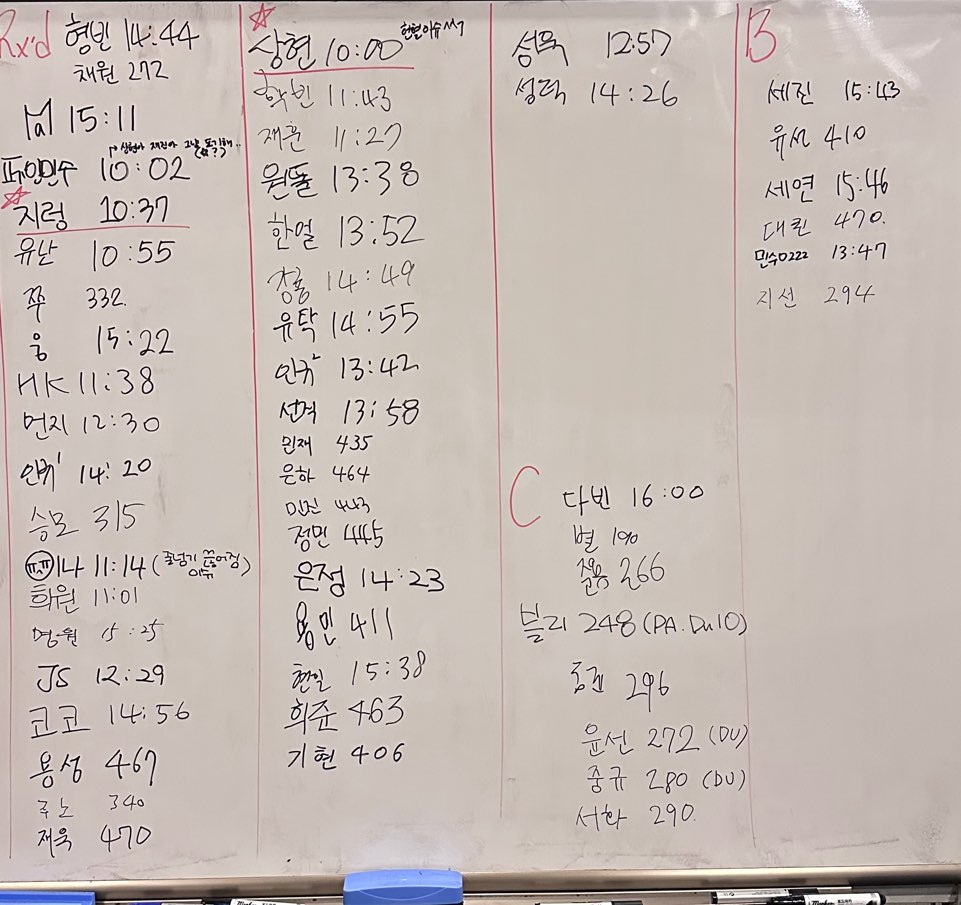 Rx'd 형빈 14:44
채원 272
Mal 15:11
10:02
지렁 10:37
유난 10:55
쭈 332
웅 15:22
HK 11:38
먼지 12:30
인쀠' 14:20
승모 315
ㅠㅠ나 11:14 (줄넘기 끊어짐 이슈)
희원 11:01
명원 15:25
JS 12:29
코코 14:56
용성 467
주노 340
재욱 470
상현 10:00
학빈 11:43
재훈 11:27
원돌 13:38
한얼 13:52
장훈 14:49
유탁 14:55
13:42
선격 13:58
민재 435
은하 464
민진 443
정민 445
은정 14:23
용민 411
현일 15:38
희준 463
기현 406
성욱 12:57
성덕 14:26
C 다빈 16:00
별 190
준용 266
블리 248 (PA. Du10)
296
윤선 272 (DU)
중규 280 (DU)
서화 290
B
세진 15:43
유선 410
세연 15:46
대퀸 470
민수0222 13:47
지선 294